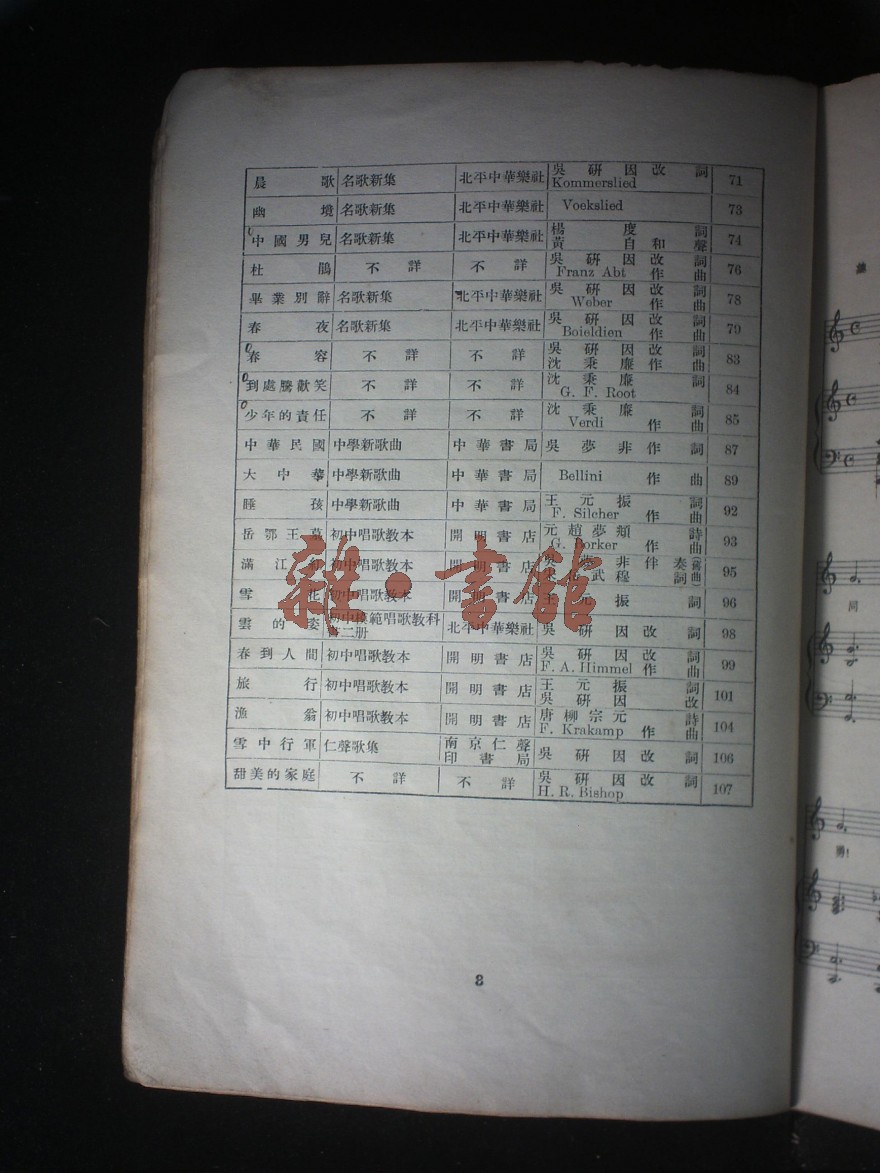 晨歌 名歌新集 北平中華樂社 吳研因改詞 Kommerslied 71
幽境 名歌新集 北平中華樂社 Voekslied 73
中國男兒 名歌新集 北平中華樂社 楊度詞 黃自和聲 74
杜鵑 不詳 不詳 吳研因改詞 Franz Abt 作曲 76
畢業別辭 名歌新集 北平中華樂社 吳研因改詞 Weber 作曲 78
春夜 名歌新集 北平中華樂社 吳研因改詞 Boieldien 作曲 79
春容 不詳 不詳 吳研因改詞 沈秉廉作曲 83
到處騰歡笑 不詳 不詳 沈秉廉詞 G. F. Root 84
少年的責任 不詳 不詳 沈秉廉詞 Verdi 作曲 85
中華民國 中學新歌曲 中華書局 吳夢非作詞 87
大中華 中學新歌曲 中華書局 Bellini 作曲 89
睡孩 中學新歌曲 中華書局 王元振詞 F. Silcher 作曲 92
岳鄂王墓 初中唱歌教本 開明書店 元趙夢頫詩 G. Borker 作曲 93
滿江紅 初中唱歌教本 開明書店 吳夢非伴奏 武穆詞 95
雪花 初中唱歌教本 開明書店 王元振詞 96
雲的姿 初中模範唱歌教科書二册 北平中華樂社 吳研因改詞 98
春到人間 初中唱歌教本 開明書店 吳研因改詞 F. A. Himmel 作曲 99
旅行 初中唱歌教本 開明書店 王元振詞 吳研因改 101
漁翁 初中唱歌教本 開明書店 唐柳宗元詩 F. Krakamp 作曲 104
雪中行軍 仁聲歌集 南京仁聲印書局 吳研因改詞 106
甜美的家庭 不詳 不詳 吳研因改詞 H. R. Bishop 107
8
雜·書館
同
勇!